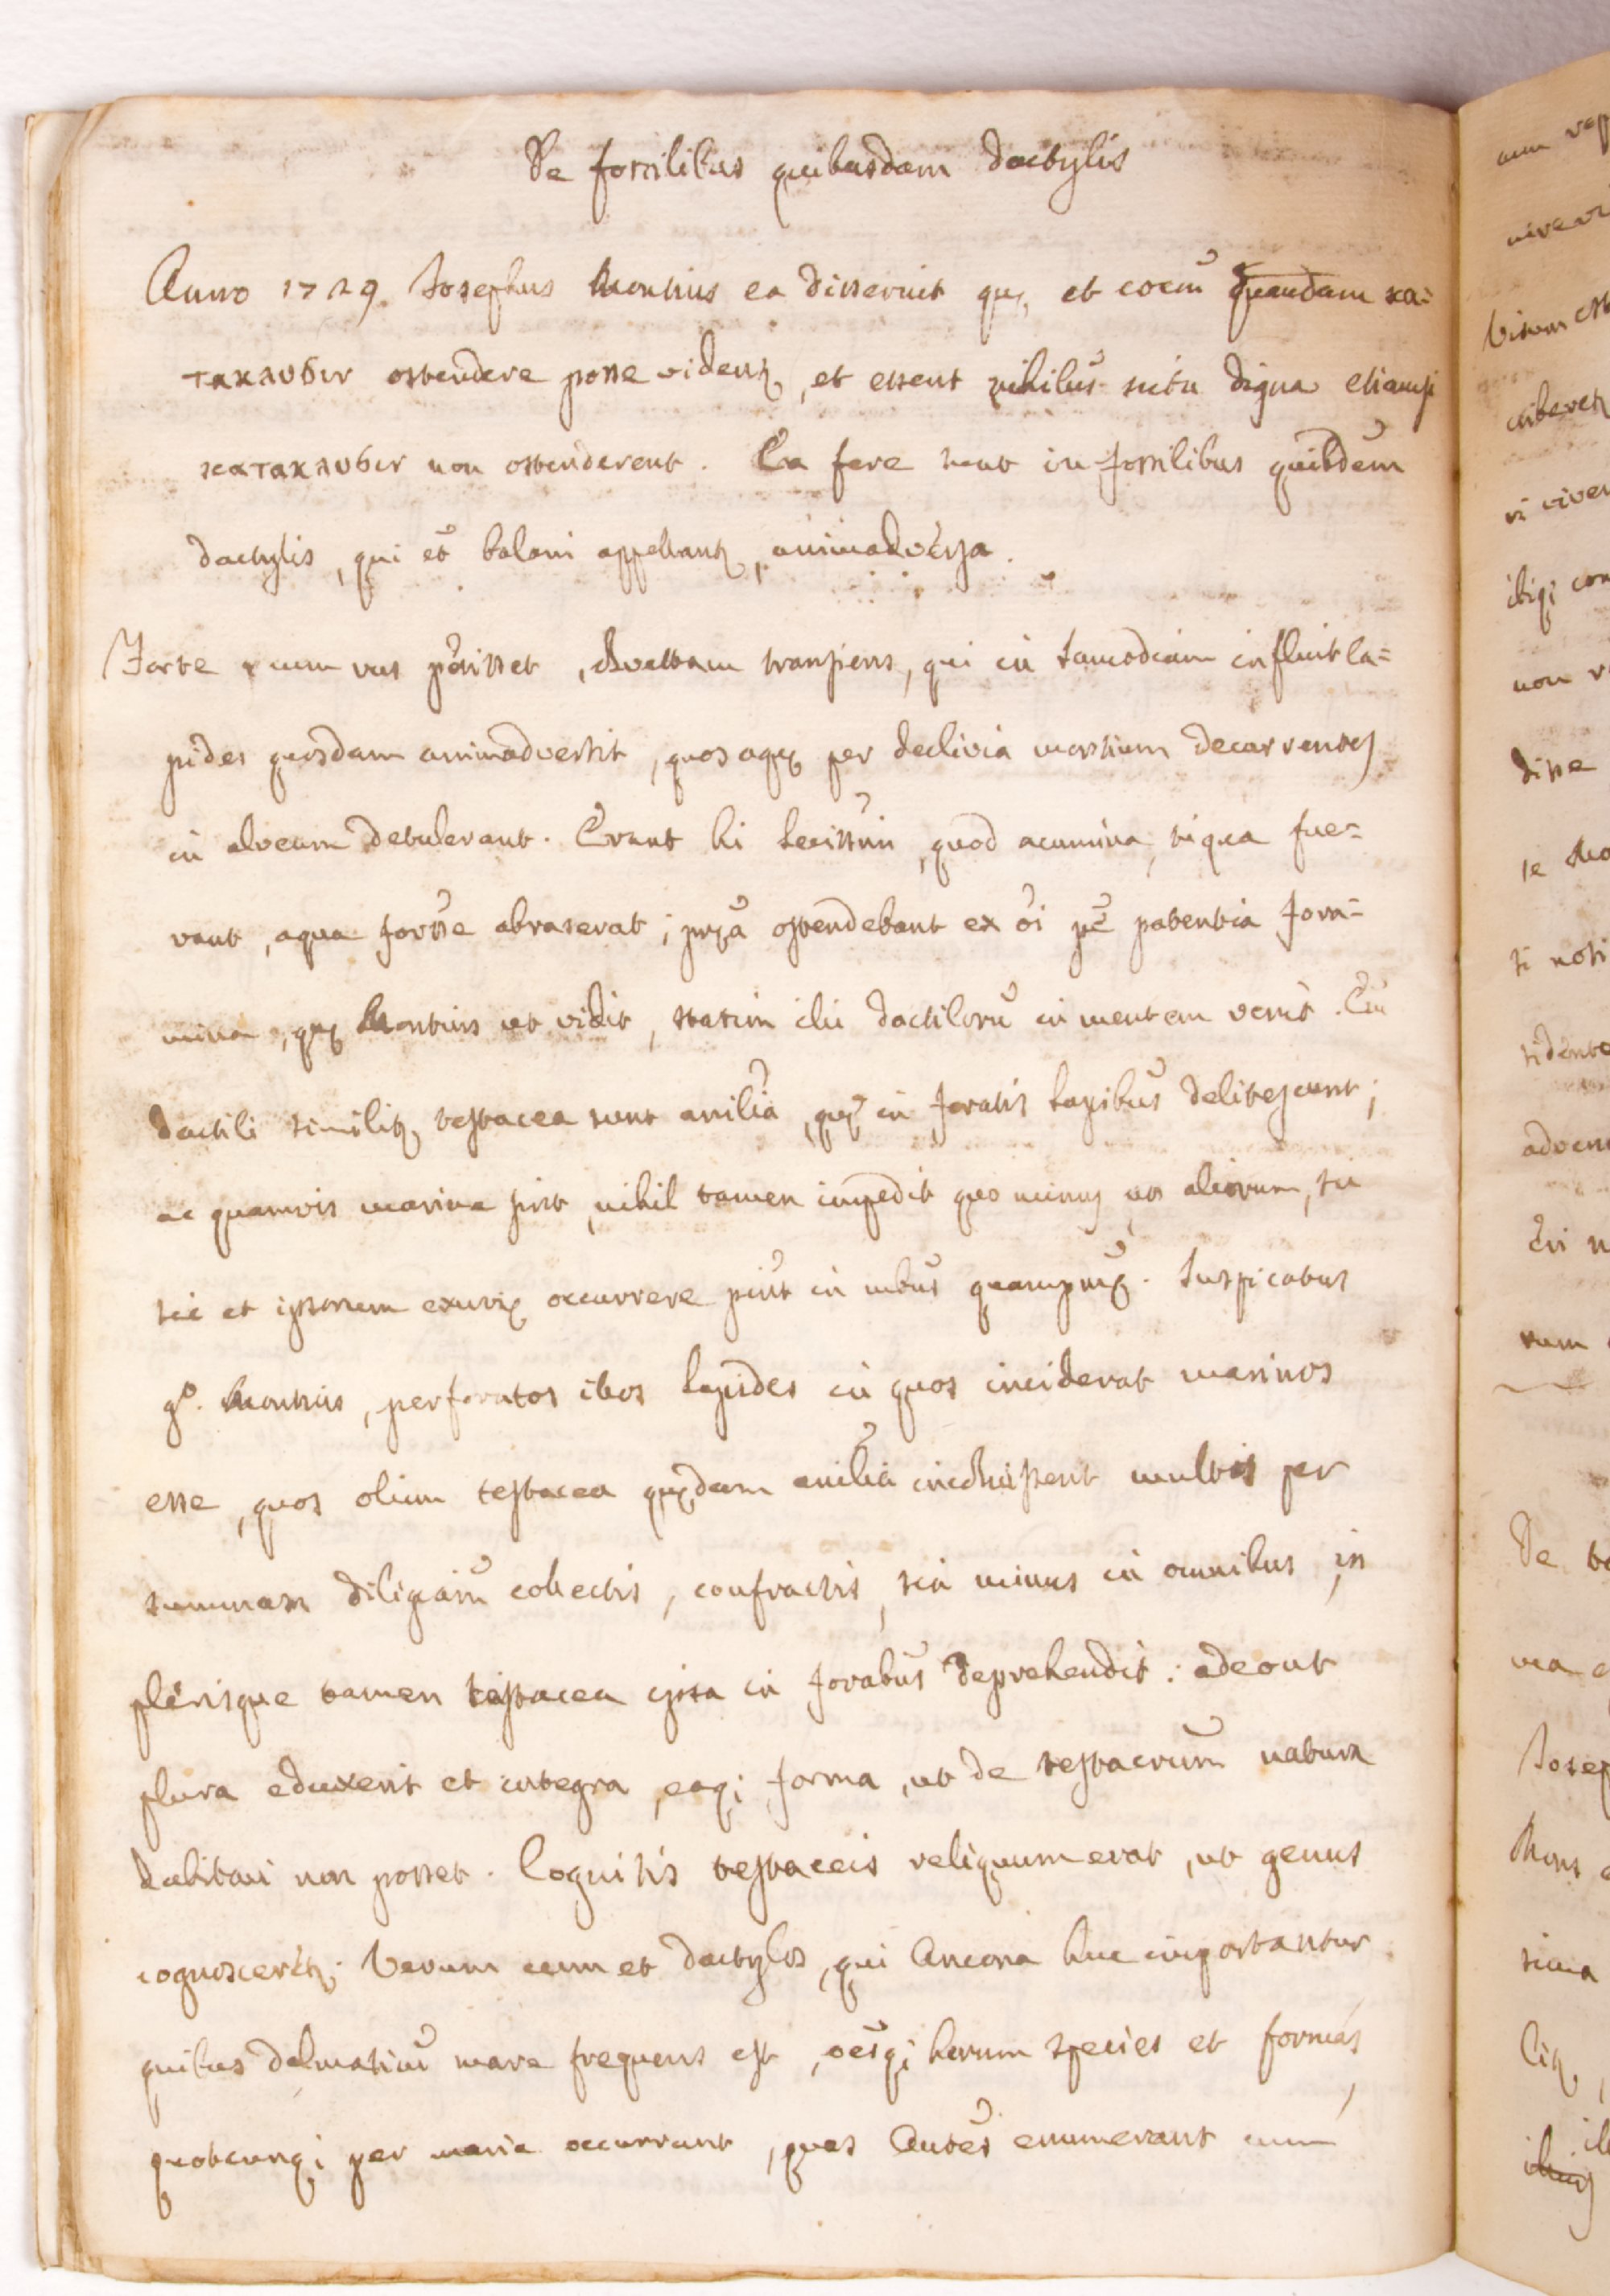 De fossilibus quibusdam dactylis
Anno 1729 Josephus Montius ea disseruit quę, et eocm̃ quandam κα=
τακλυσιν ostendere posse videntꝶ, et essent nihilũs scitu digna etiamsi
κατακλυσιν non ostenderent. Ea fere sunt in fossilibus quibdem̃
dactylis, qui et̃ balani appellantꝶ, animadversa.
Forte cum rus petisset, transiens, qui in Samodiam influit la=
pides quosdam animadvertit, quos aquę per declivia montium decurrentes
in alveum detulerant. Erant hi leviss̃mi, quod acumina, siqua fue=
rant, aqua fort̃se abraserat; ostendebant ex õi pẽ patentia fora=
mina, quę Montius ut vidit, statim illi dactilorũ in mentem venit. Cũ
dactili similitꝶ testacea sunt anĩlia, quę in foratis lapibũs delitescunt;
ac quamvis marina sint, nihil tamen impedit quo minus, ut aliorum, sic
sic et ipsorum exuvię occurrere pĩnt in mbũs quampm̃ꝶ. Suspicatus
gº. Montius, perforatos illos lapides in quos inciderat marinos
esse, quos olim testacea quędam anilĩa incoluissent multis per
summam diligaĩm collectis, confractis, sin minus in omnibus, in
plerisque tamen testacea ipsa in forabũs deprehendit: adeout
plura eduxerit et integra, eaqꝫ forma, ut de testacrũm natura
dubitari non posset. Cognitis testaceis reliquum erat, ut genus
cognoscerẽtꝶ. Verum cum et dactylos, qui Ancona huc importantur
quibus dalmaticũ mare frequens est, oẽsqꝫ horum species et formas,
quotcunqꝫ per maria occurrunt, quas Autẽs enumerant cum